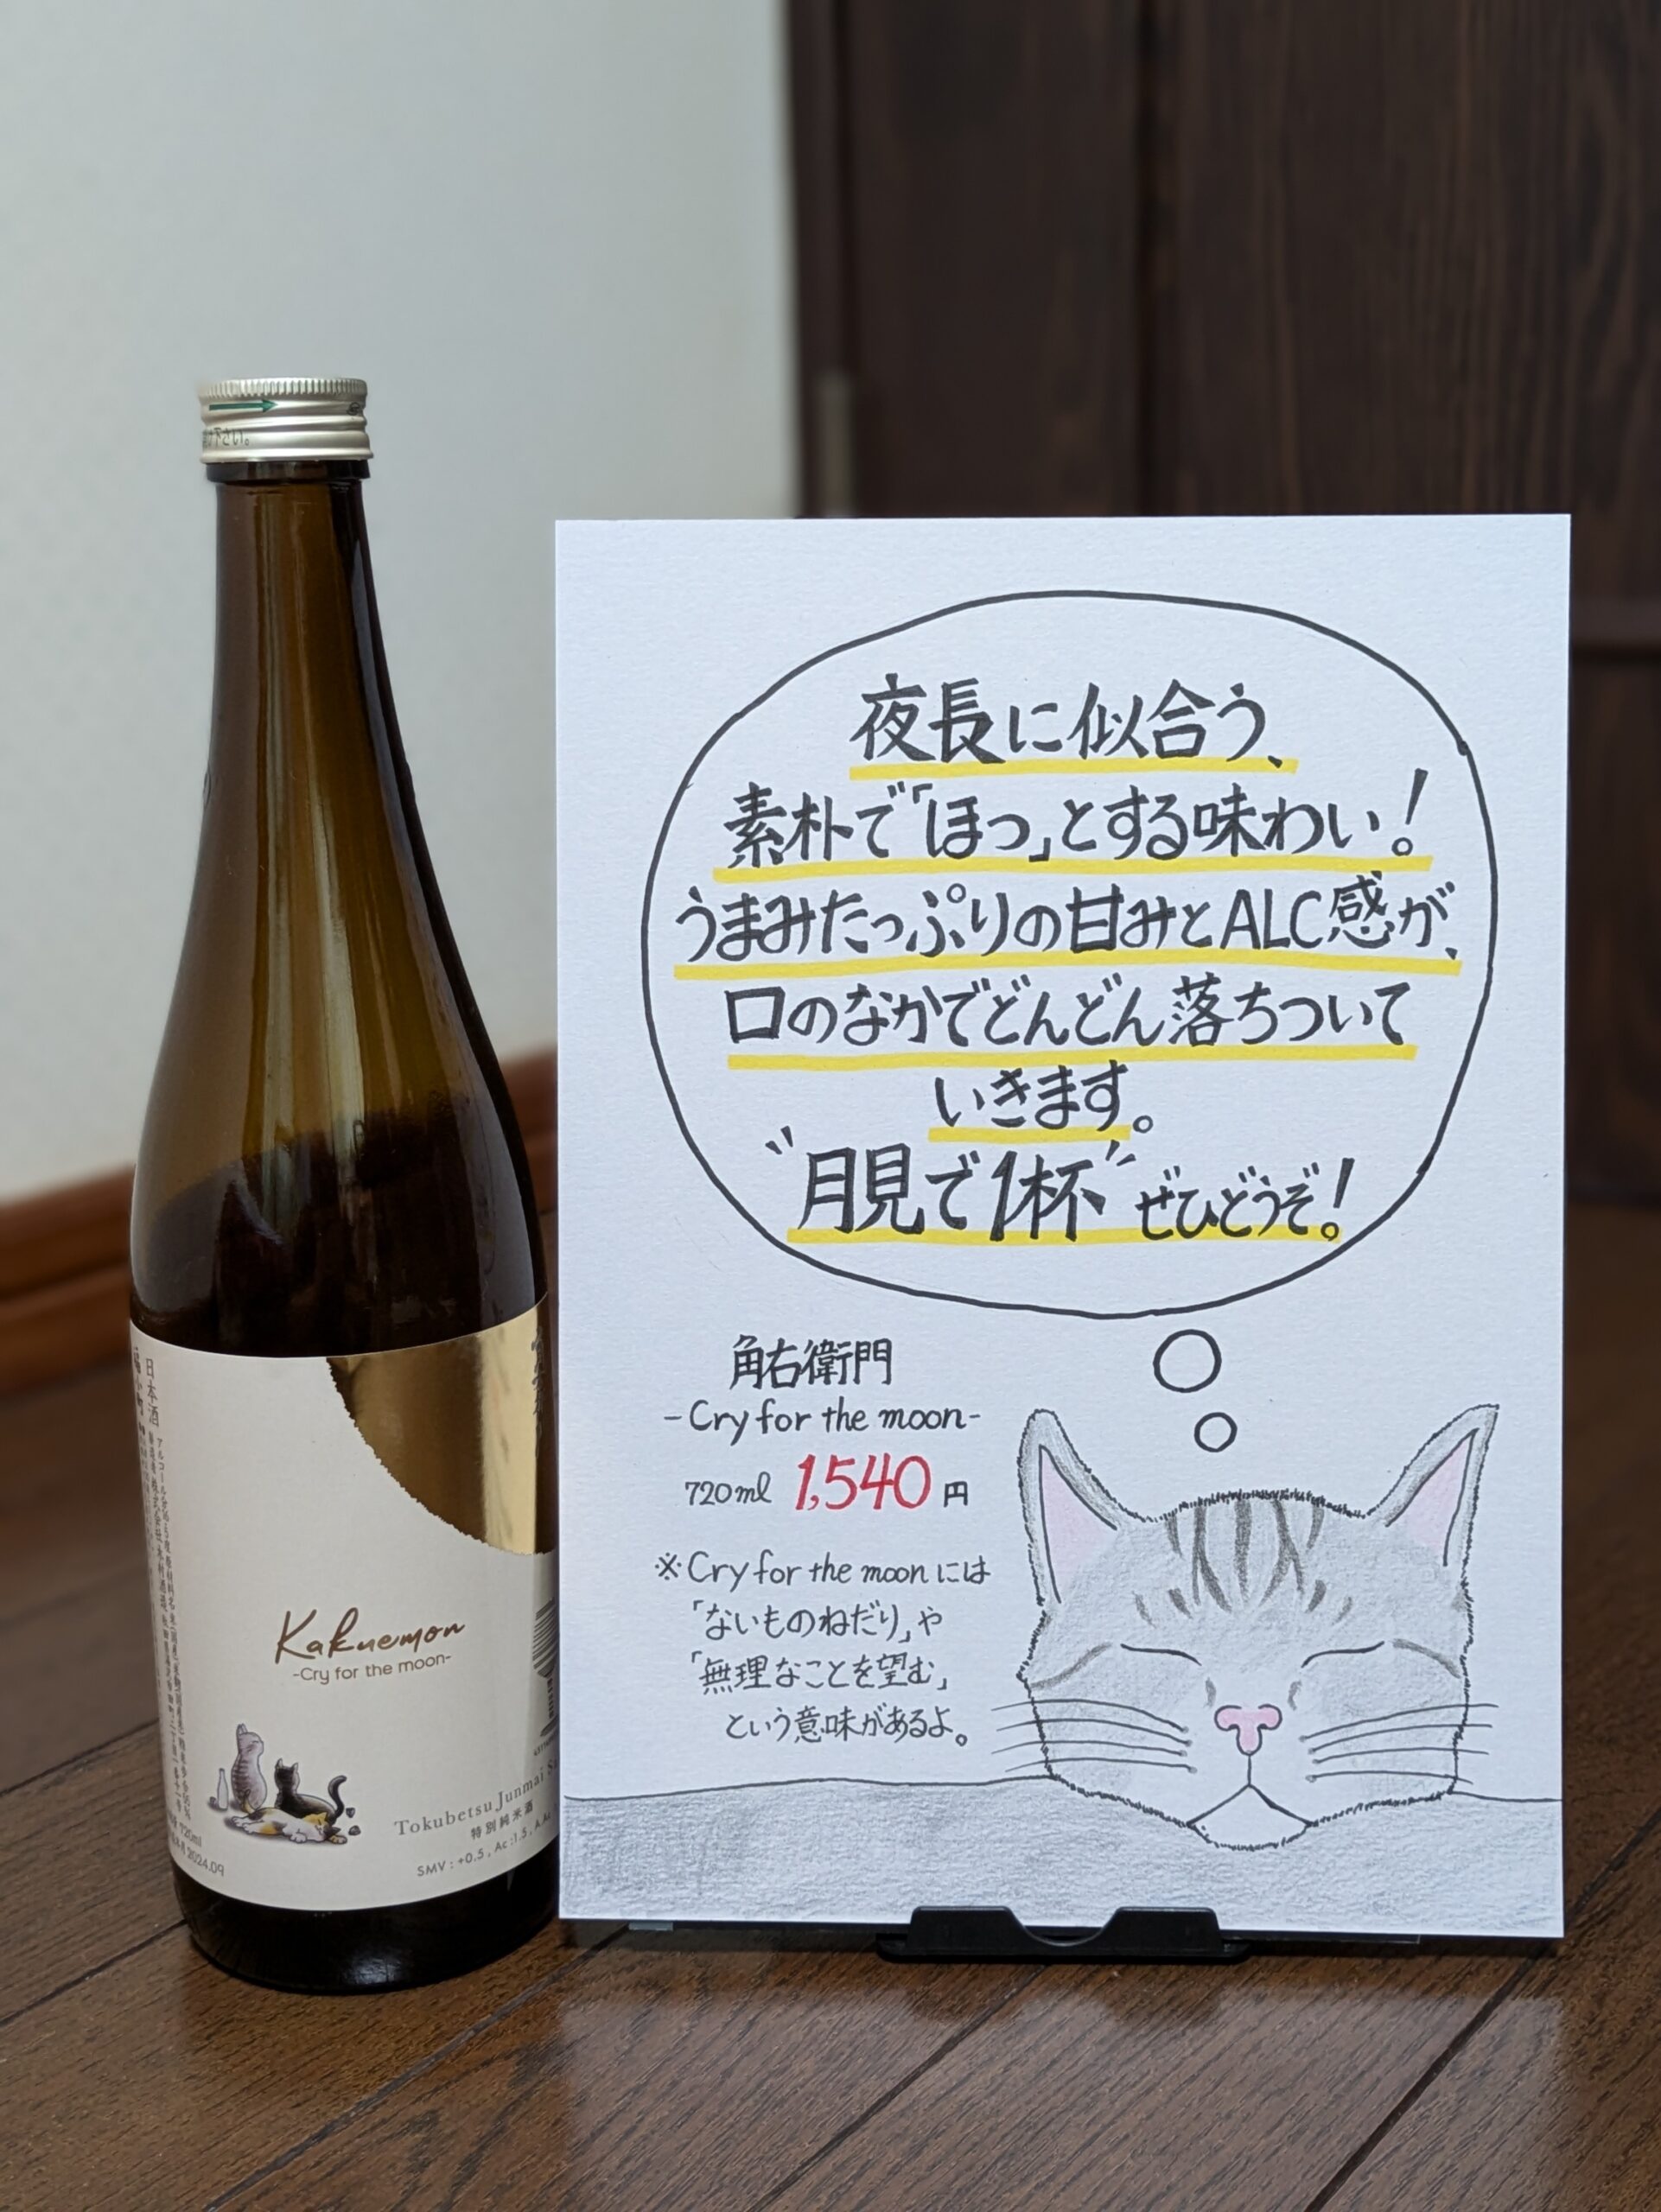 け下さい。
日本酒
720ml
2024.09
Kakuemon
-Cry for the moon-
Tokubetsu Junmai
特別純米酒
SMV : +0.5 , Ac : 1.5 , A.A
夜長に似合う、
素朴で「ほっ」とする味わい!
うまみたっぷりの甘みとALC感が、
口のなかでどんどん落ちついて
いきます。
"月見で1杯"ぜひどうぞ!
角右衛門
-Cry for the moon-
720ml 1,540円
※Cry for the moonには
「ないものねだり」や
「無理なことを望む」
という意味があるよ。